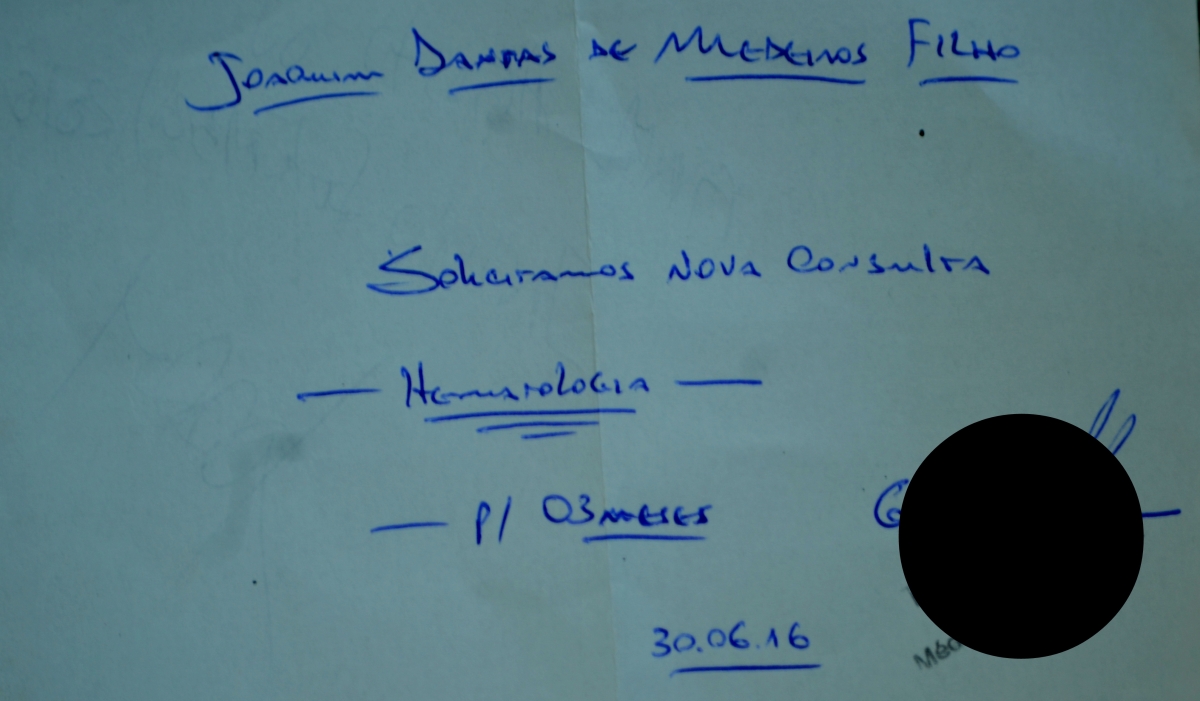 Joaquim Dantas de Medeiros Filho
Solicitamos nova consulta
— Hematologia —
— P/ 03 meses
30.06.16